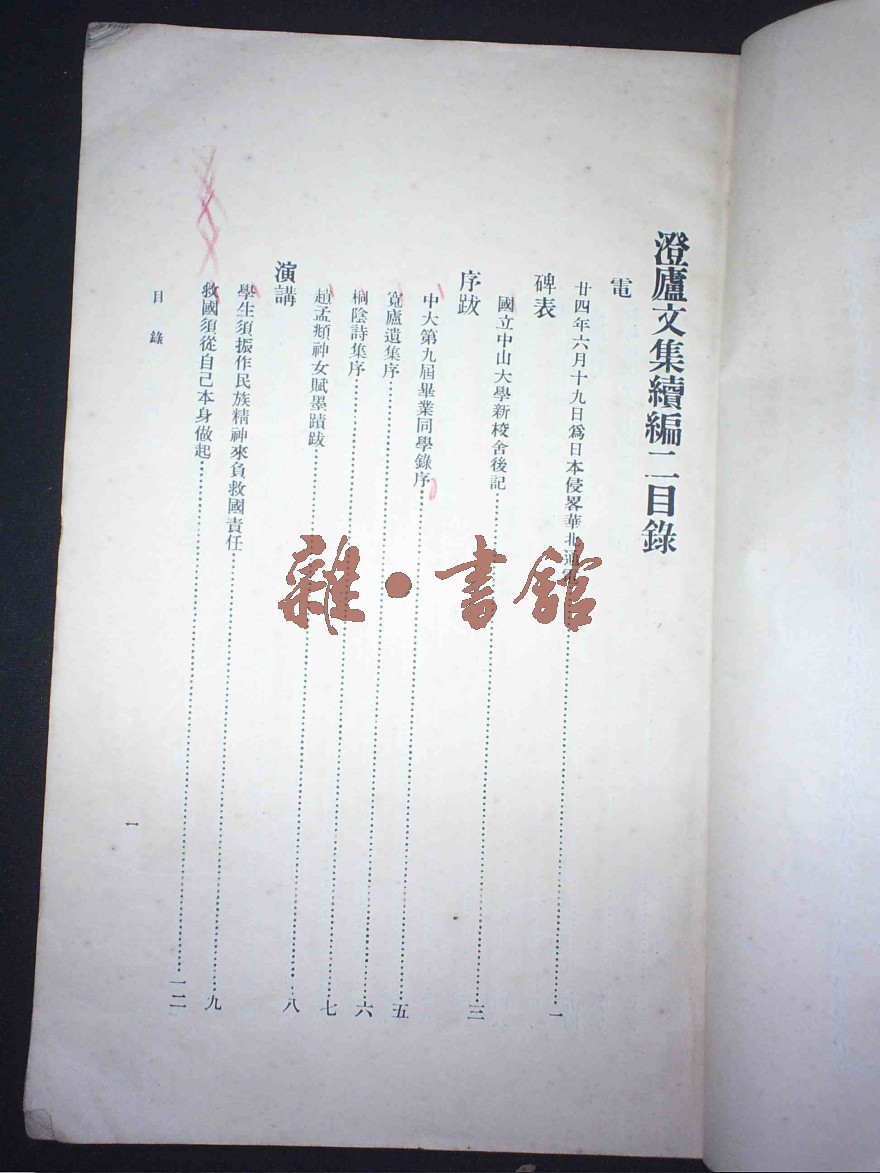 澄廬文集續編二目錄
電
廿四年六月十九日爲日本侵畧華北通電……一
碑表
國立中山大學新校舍後記……三
序跋
中大第九屆畢業同學錄序……五
寬廬遺集序……六
桐陰詩集序……七
趙孟頫神女賦墨蹟跋……八
演講
學生須振作民族精神來負救國責任……九
救國須從自己本身做起……一二
目錄
一
雜·書館